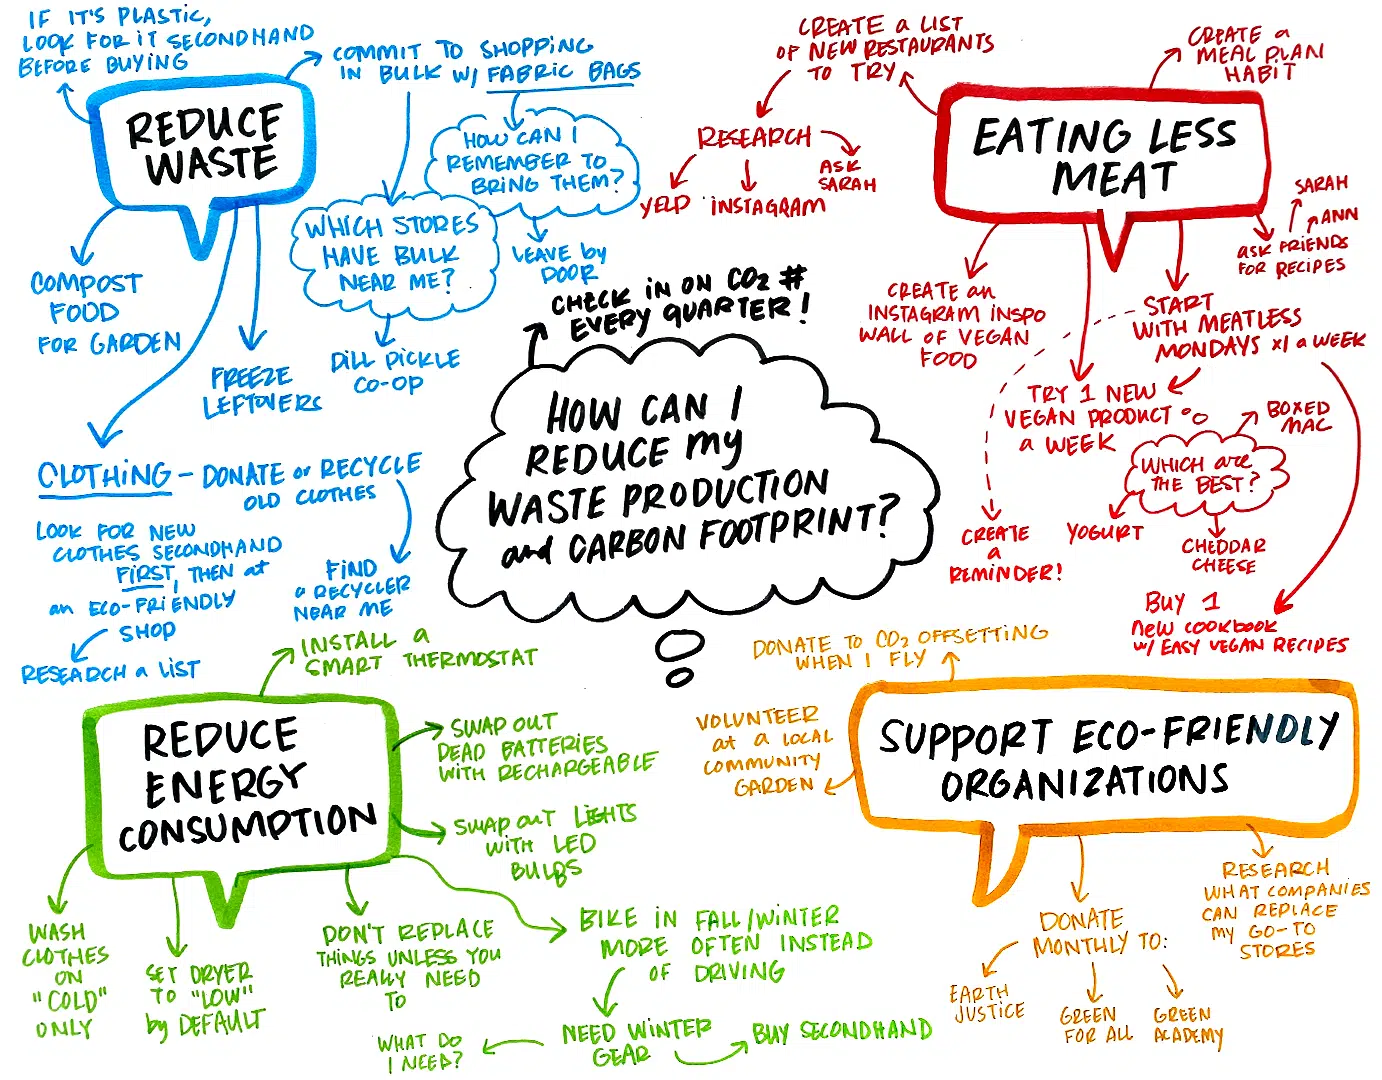 IF IT'S PLASTIC,
LOOK FOR IT SECONDHAND
BEFORE BUYING
COMMIT TO SHOPPING
IN BULK W/ FABRIC BAGS
REDUCE
WASTE
HOW CAN I
REMEMBER TO
BRING THEM?
LEAVE by
DOOR
WHICH STORES
HAVE BULK
NEAR ME?
DILL PICKLE
CO-OP
COMPOST
FOOD
FOR GARDEN
FREEZE
LEFTOVERS
CLOTHING - DONATE or RECYCLE
OLD CLOTHES
LOOK FOR NEW
CLOTHES SECONDHAND
FIRST, THEN at
an ECO-FRIENDLY
SHOP
RESEARCH a LIST
FIND
a RECYCLER
NEAR ME
CREATE a LIST
OF NEW RESTAURANTS
TO TRY
RESEARCH
YELP
INSTAGRAM
ASK
SARAH
EATING LESS
MEAT
CREATE a
MEAL PLAN
HABIT
SARAH
ANN
ask FRIENDS
FOR RECIPES
CREATE an
INSTAGRAM INSPO
WALL OF VEGAN
FOOD
START
WITH MEATLESS
MONDAYS x1 a WEEK
TRY 1 NEW
VEGAN PRODUCT
a WEEK
WHICH are
THE BEST?
BOXED
MAC
YOGURT
CHEDDAR
CHEESE
CREATE
a
REMINDER!
BUY 1
new cookbook
W/ EASY VEGAN RECIPES
CHECK IN ON CO2 #
EVERY QUARTER!
HOW CAN I
REDUCE my
WASTE PRODUCTION
and CARBON FOOTPRINT?
INSTALL a
SMART THERMOSTAT
REDUCE
ENERGY
CONSUMPTION
SWAP OUT
DEAD BATTERIES
WITH RECHARGEABLE
SWAP OUT LIGHTS
WITH LED
BULBS
WASH
CLOTHES
ON
"COLD"
ONLY
SET DRYER
TO "LOW"
by DEFAULT
DON'T REPLACE
THINGS UNLESS YOU
REALLY NEED
TO
BIKE IN FALL/WINTER
MORE OFTEN INSTEAD
OF DRIVING
NEED WINTER
GEAR
WHAT DO
I NEED?
BUY SECONDHAND
DONATE TO CO2 OFFSETTING
WHEN I FLY
VOLUNTEER
at a LOCAL
COMMUNITY
GARDEN
SUPPORT ECO-FRIENDLY
ORGANIZATIONS
DONATE
MONTHLY TO:
EARTH
JUSTICE
GREEN
FOR ALL
GREEN
ACADEMY
RESEARCH
WHAT COMPANIES
CAN REPLACE
MY GO-TO
STORES